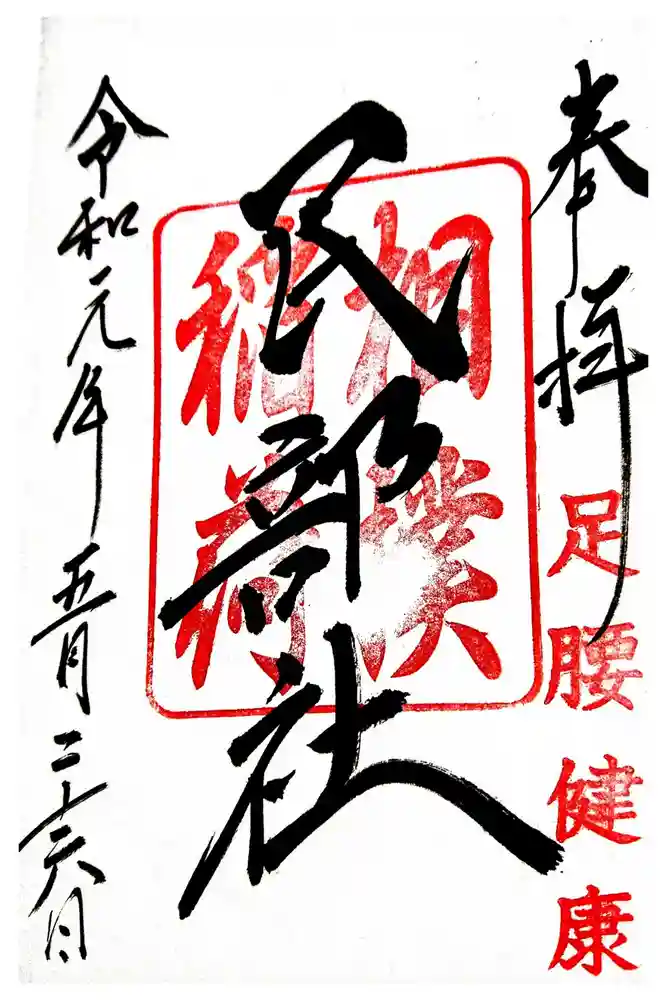 奉拝
足腰健康
民部社
相撲
稲荷
令和元年五月二十六日